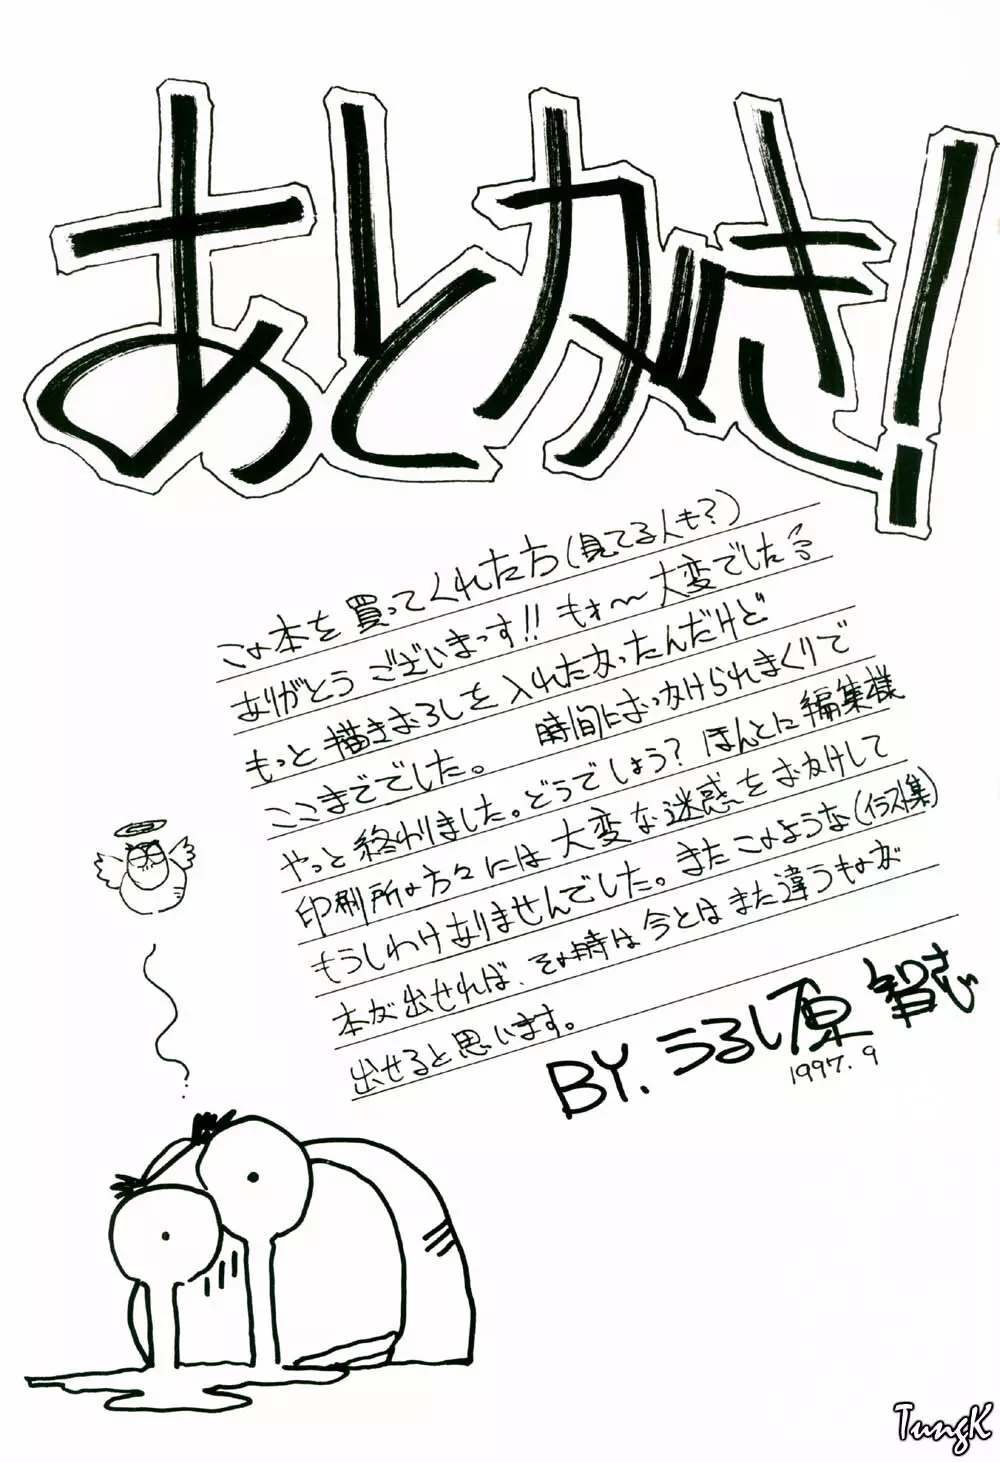 あとがき!
この本を買ってくれた方(見てる人も?)
ありがとうございまっす!! もォ〜大変でした
もっと描きおろしを入れたかったんだけど
ここまででした。 時間におっかけられまくりで
やっと終わりました。どうでしょう? ほんとに編集様
印刷所の方々には大変な迷惑をおかけして
もうしわけありませんでした。またこのような(イラスト集)
本が出せれば、その時は今とはまた違うものが
出せると思います。
BY.うるし原 智志
1997.9
TungK